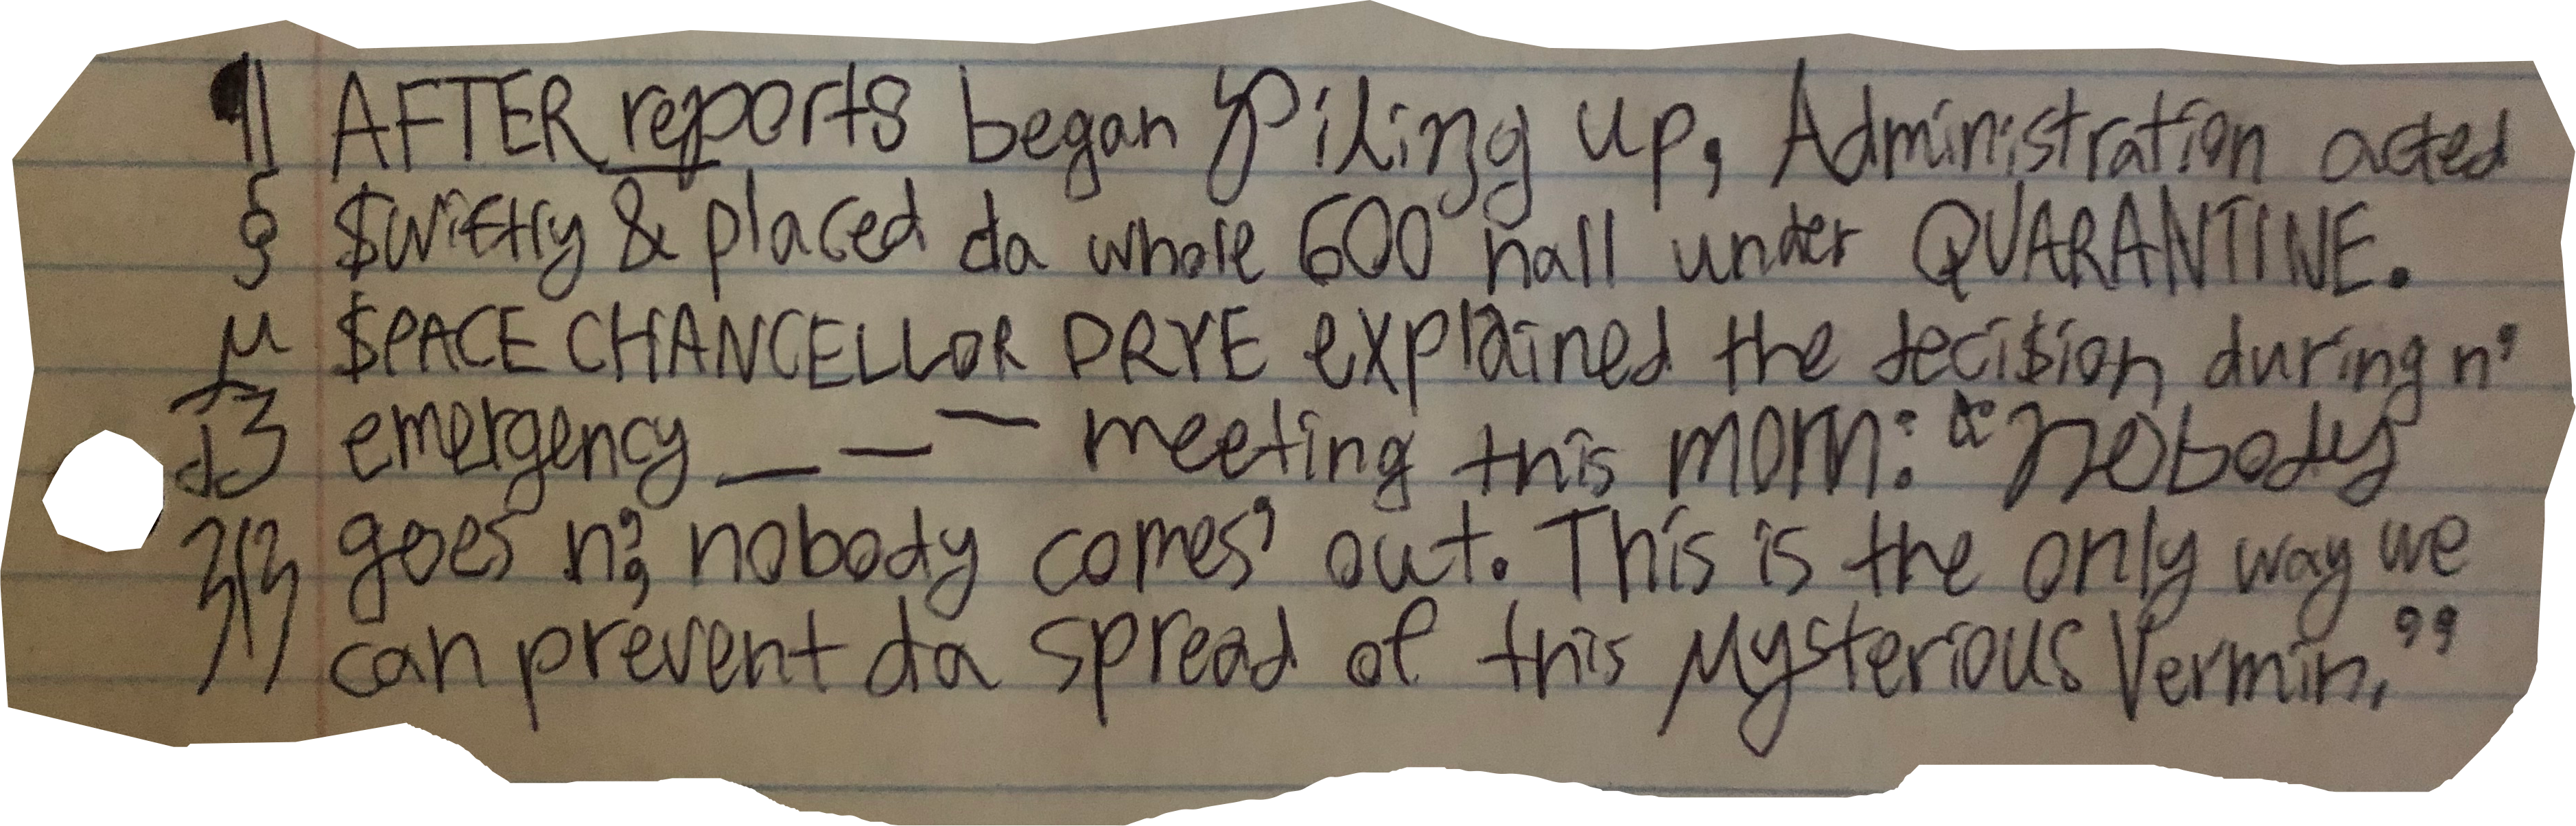 ¶ AFTER reports began Piling up, Administration acted
§ $wiftly & placed da whole 600 hall under QUARANTINE.
µ $PACE CHANCELLOR DRYE explained the deci$ion during n'
emergency _ — ¯ meeting this morn: “nobody
goes n', nobody comes' out. This is the only way we
can prevent da spread of this Mysterious Vermin.”